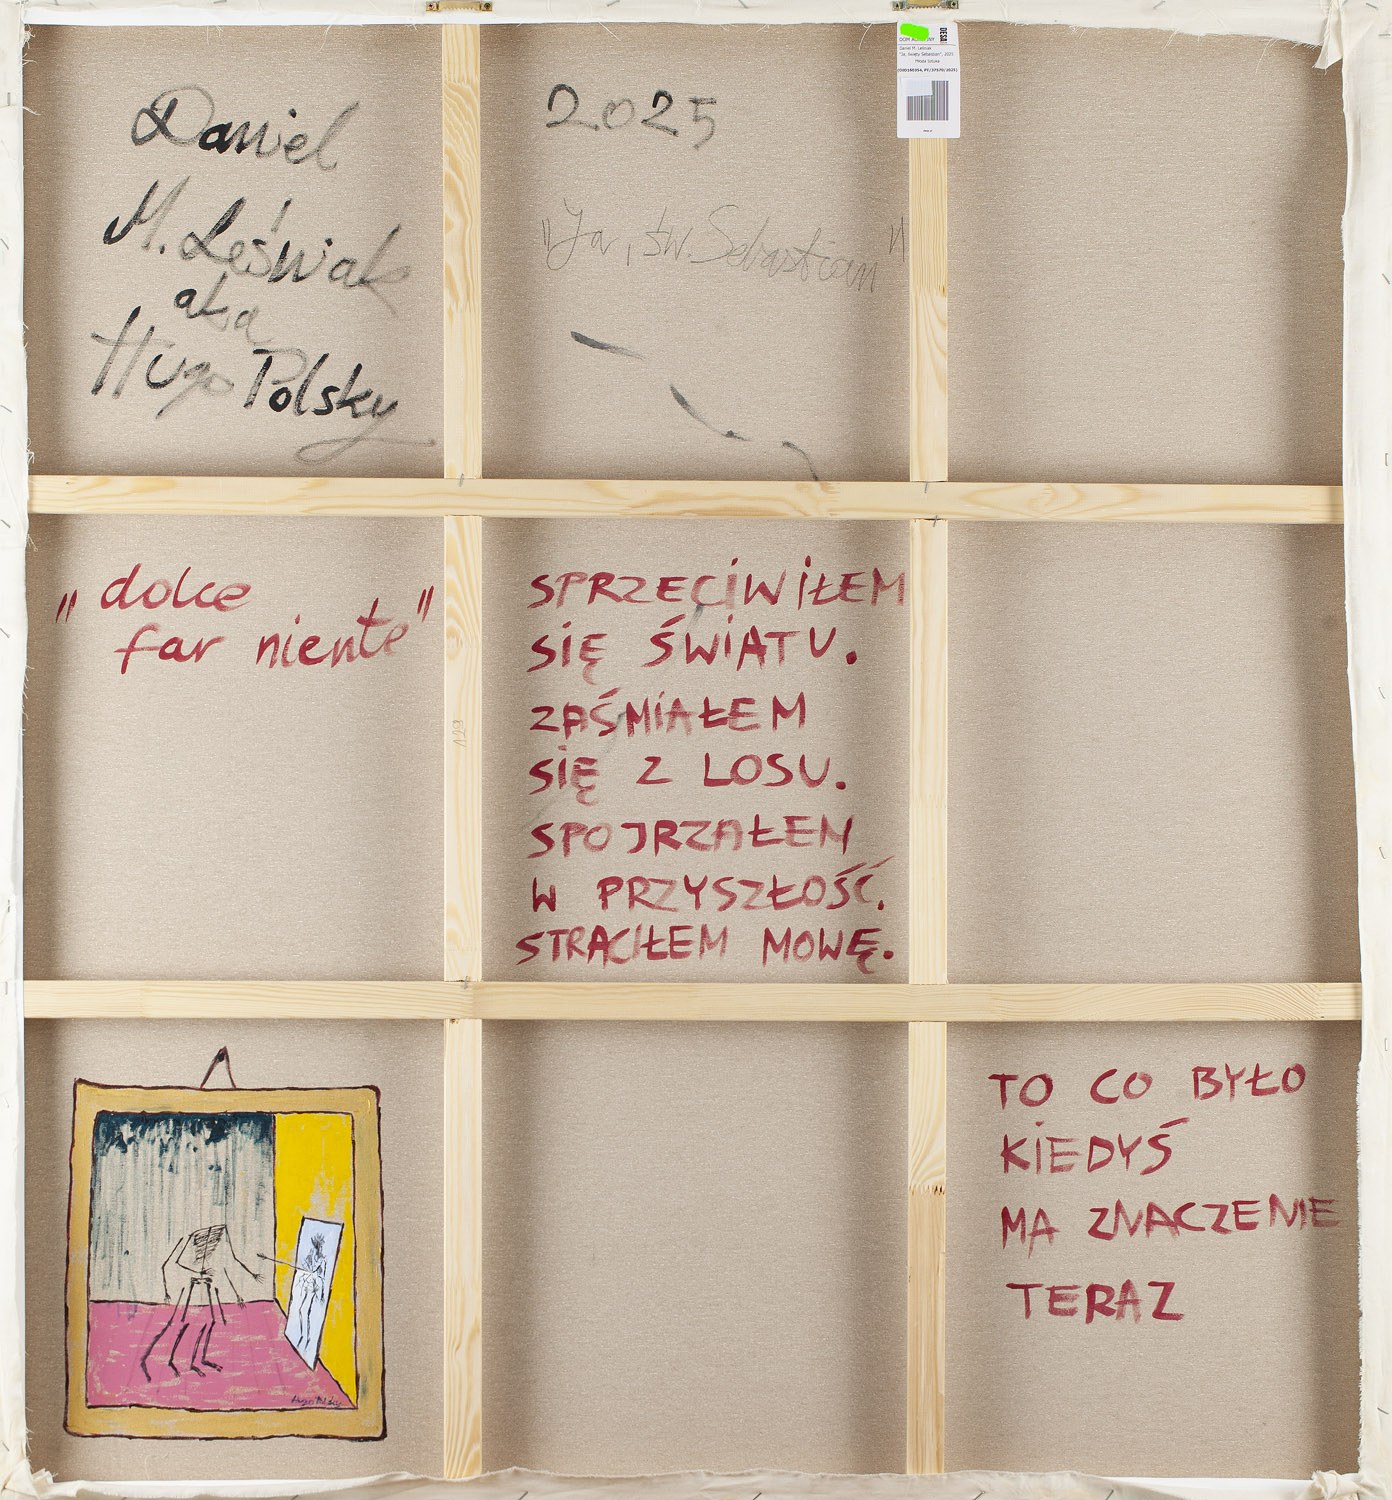 Daniel
M. Leśniak
aka
Hugo Polsky
2025
"Ja, św. Sebastian"
DESA
DOM AUKCYJNY
Daniel M. Leśniak
"Ja, Święty Sebastian", 2025
"dolce
far niente"
SPRZECIWIŁEM
SIĘ ŚWIATU.
ZAŚMIAŁEM
SIĘ Z LOSU.
SPOJRZAŁEM
W PRZYSZŁOŚĆ.
STRACIŁEM MOWĘ.
129
Hugo Polsky
TO CO BYŁO
KIEDYŚ
MA ZNACZENIE
TERAZ